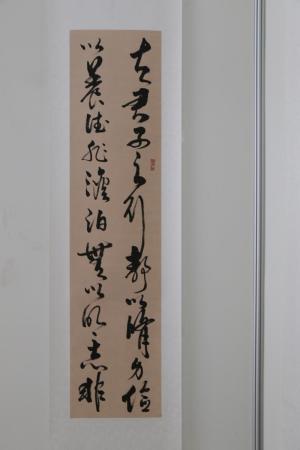 夫君子之行静以修身俭
以养德非澹泊無以明志非